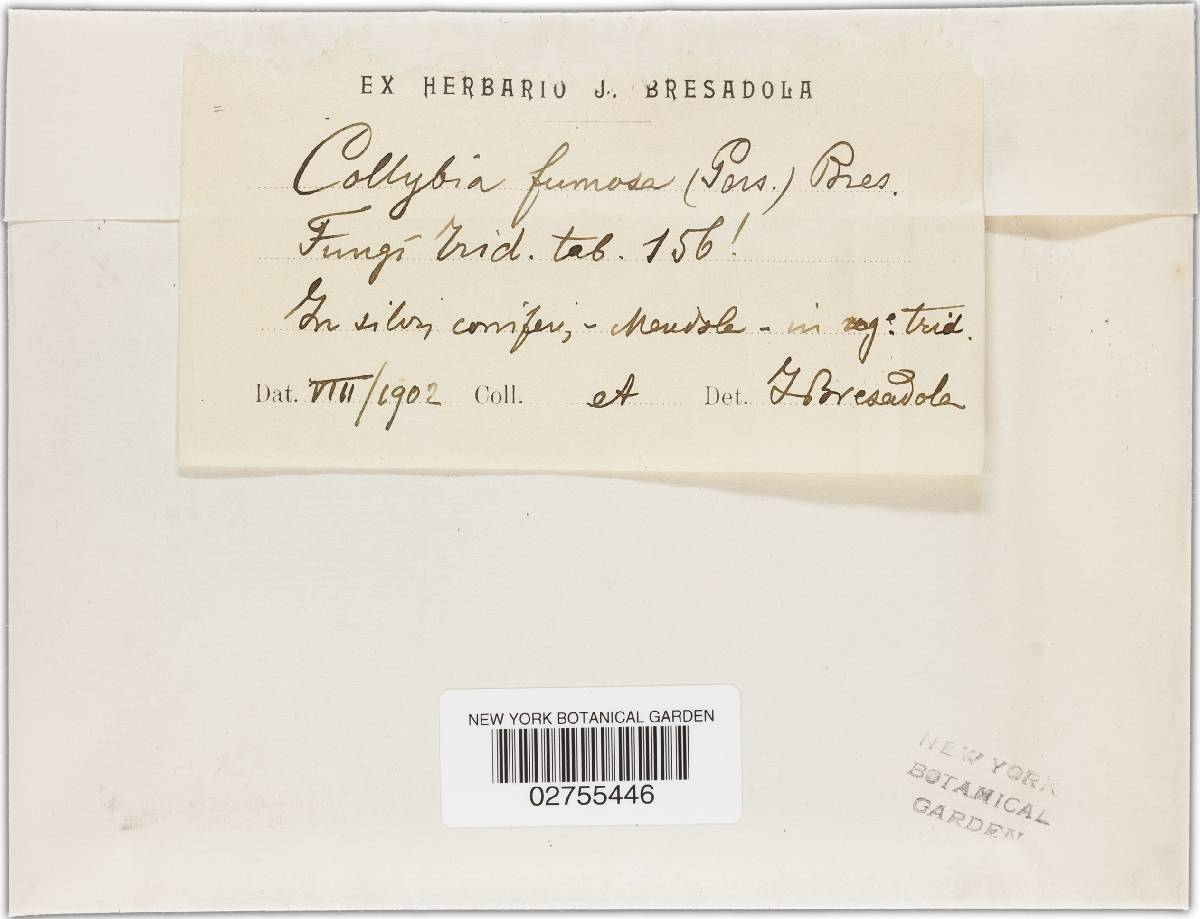 EX HERBARIO J. BRESADOLA
Collybia fumosa (Pers.) Bres.
Fungi Trid. tab. 156!
In silvis coniferis, - Mendola - in trid.
Dat. VIII/1902 Coll. et Det. J Bresadola
NEW YORK BOTANICAL GARDEN
02755446
NEW YORK
BOTANICAL
GARDEN